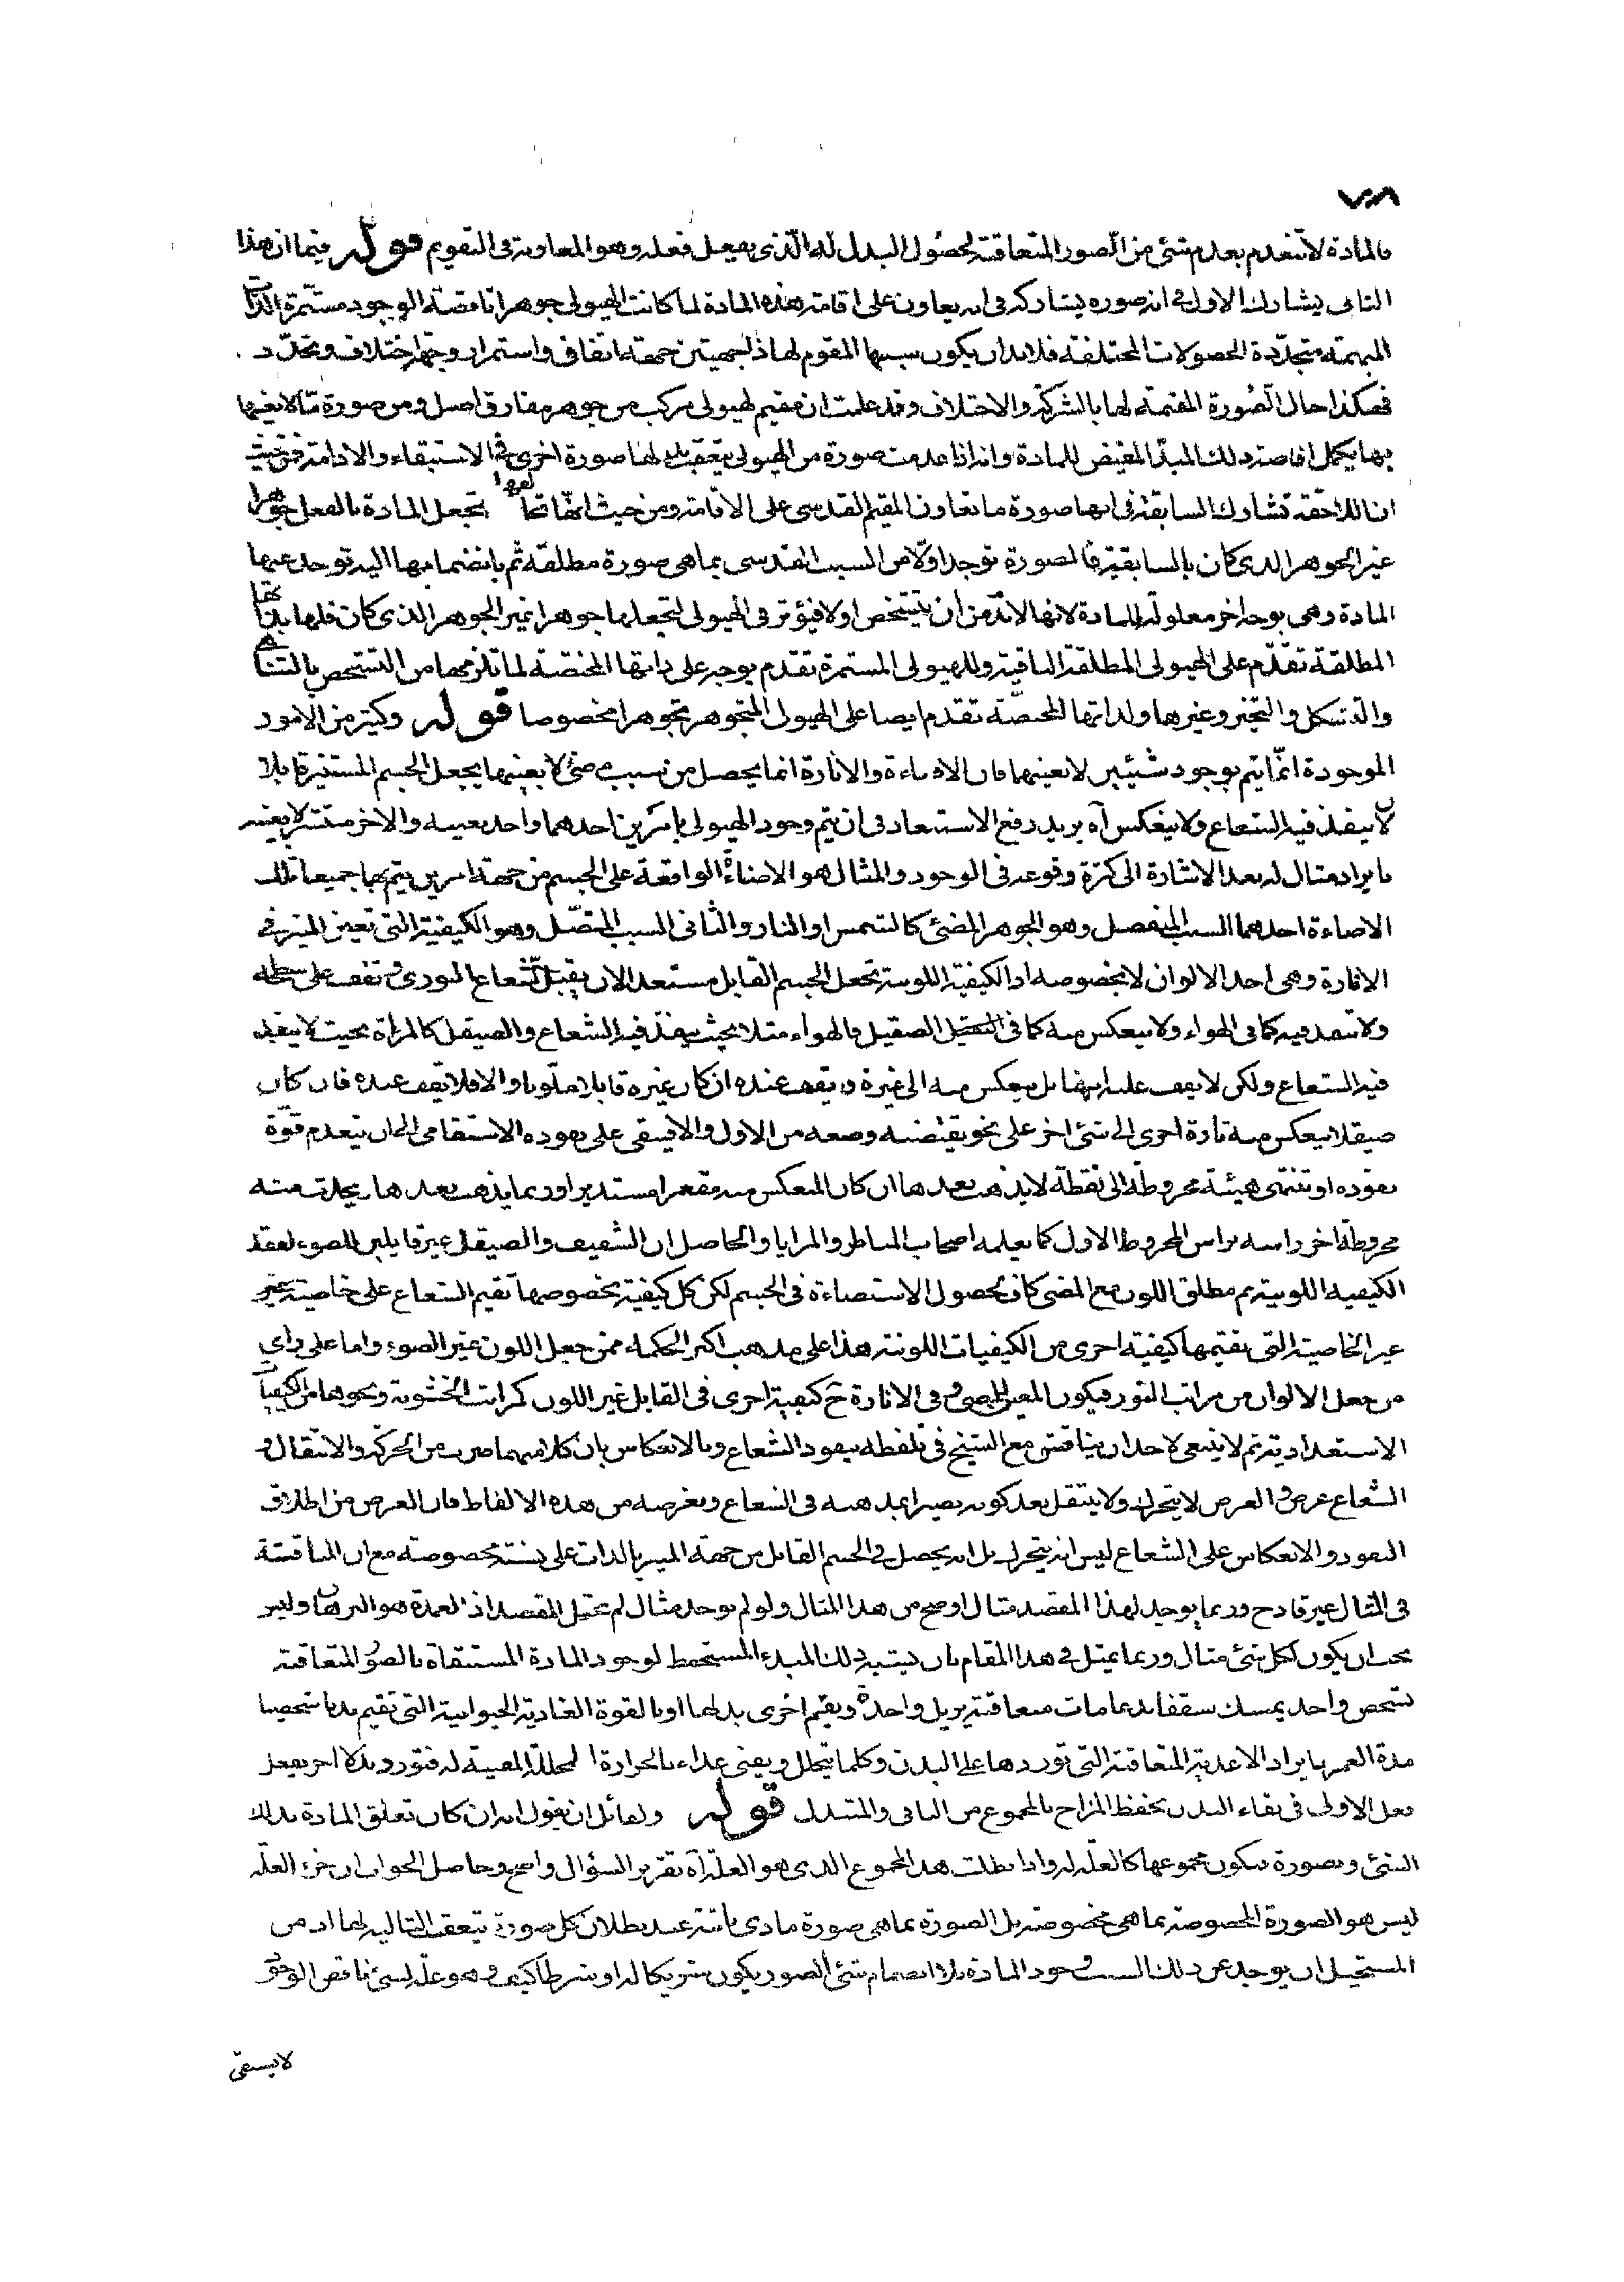 ٧٨
فالمادة لا تنعدم بعدم شئ من الصور المتعاقبة لحصول البدل له الذى يفعل فعله وهو المعاونة فى التقويم قوله فبما ان هذا
الثانى يشارك الاول فى انه صورة يشاركه فى انه يعاون على اقامة هذه المادة لما كانت الهيولى جوهرا ناقصة الوجود مستمرة الذات
المبهمة متجددة الحصولات المختلفة فلابد ان يكون سببها المقوم لها ذا جهتين جهة اتفاق واستمرار وجهة اختلاف وتجدد
فهكذا حال الصورة المقيمة لها بالشركة والاختلاف وقد علمت ان مقيم الهيولى مركب من جوهر مفارق اصل ومن صورة ما لا بعينها
بها يكمل افاضة ذلك المبدأ المفيض للمادة وانه اذا عدمت صورة من الهيولى تعقب لها صورة اخرى فى الاستبقاء والادامة فمن حيث
ان اللاحقة تشارك السابقة فى انها صورة ما تعاون المقيم القدسى على الاقامة ومن حيث انها تخالفها تجعل المادة بالفعل جوهرا
غير الجوهر الذى كان بالسابقة فالصورة توجد اولا من السبب القدسى بما هى صورة مطلقة ثم بانضمامها اليه توجد عنهما
المادة وهى بوجه اخر معلولة للمادة لانها لابد من ان يتشخص اولا فيؤثر فى الهيولى لتجعلها جوهرا غير الجوهر الذى كان فلها بذاتها
المطلقة تقدم على الهيولى المطلقة الباقية وللهيولى المستمرة تقدم بوجه على ذاتها المختصة لما تلزمها من التشخص بالتناهى
والتشكل والتحيز وغيرها ولذاتها المختصة تقدم ايضا على الهيولى المتجوهر بتجوهرا مخصوصا قوله وكثير من الامور
الموجودة انما يتم بوجود شيئين لا بعينهما فان الاضاءة والانارة انما يحصل من سبب مضئ لا بعينها يجعل الجسم المستنير قابلا
لان ينفذ فيه الشعاع ولا ينعكس آه يريد رفع الاستبعاد فى ان يتم وجود الهيولى بامرين احدهما واحد بعينه والاخر منتشر لا بعينه
بايراد مثال له بعد الاشارة الى كثرة وقوعه فى الوجود والمثال هو الاضاءة الواقعة على الجسم من جهة امرين يتم بهما جميعا تلك
الاضاءة احدهما السبب المنفصل وهو الجوهر المضئ كالشمس او النار والثانى السبب المتصل وهو الكيفية التى تعين المنير فى
الانارة وهى احد الالوان لا بخصوصه اذ الكيفية اللونية تجعل الجسم القابل مستعد الان يقبل الشعاع النورى فتقف على سطحه
ولا تنفذ فيه كما فى الهواء ولا ينعكس منه كما فى الصقيل فالهواء مثلا بحيث ينفذ فيه الشعاع والصيقل كالمرآة بحيث لا ينفذ
فيه الشعاع ولكن لا يقف عليه ايضا بل ينعكس منه الى غيره ويقف عنده ان كان غيره قابلا ملونا والا فلا تقف عنده فان كان
صيقلا ينعكس منه تارة اخرى الى شئ اخر على نحو يقتضيه وضعه من الاول والا فيبقى على نفوذه الاستقامى الى ان ينعدم قوة
نفوذه او تنتهى هيئة مخروطة الى نقطة لا يذهب بعدها ان كان المنعكس منه مقعرا مستديرا وربما يذهب بعدها ويحدث منه
مخروطة اخر راسه براس المخروط الاول كما يعلمه اصحاب المناظر والمرايا والحاصل ان الشفيف والصيقل غير قابلين للضوء لفقد
الكيفية اللونية ثم مطلق اللون مع المضى كاف لحصول الاستضاءة فى الجسم لكن كل كيفية بخصوصها تقيم الشعاع على خاصية غير
غير الخاصية التى تقيمها كيفية اخرى من الكيفيات اللونية هذا على مذهب اكثر الحكماء ممن جعل اللون غير الضوء واما على راى
من جعل الالوان من مراتب النور فيكون المعين للمضى فى الانارة ح كيفية اخرى فى القابل غير اللون كمراتب الخشونة ونحوها من الكيفيات
الاستعدادية ثم لا ينبغى لاحد ان يناقش مع الشيخ فى تلفظه بنفوذ الشعاع وبالانعكاس بان كلا منهما ضرب من الحركة والانتقال و
الشعاع عرض والعرض لا يتحرك ولا ينتقل بعد كونه بصيرا بمذهبه فى الشعاع وبغرضه من هذه الالفاظ فان الغرض من اطلاق
النفوذ والانعكاس على الشعاع ليس انه يتحرك بل انه يحصل فى الجسم القابل من جهة المنير بالذات على نسبة مخصوصة مع ان المناقشة
فى المثال غير قادح وربما يوجد لهذا المقصد مثال اوضح من هذا المثال ولو لم يوجد مثال لم يختل المقصد اذ العمدة هو البرهان وليس
يجب ان يكون لكل شئ مثال وربما يمثل فى هذا المقام بان يشبه ذلك المبدء المستحفظ لوجود المادة المستبقاة بالصور المتعاقبة
بشخص واحد يمسك سقفا بدعامات متعاقبة يزيل واحدة ويقيم اخرى بدلها او بالقوة الغاذية الحيوانية التى تقيم بدنا شخصيا
مدة العمر بايراد الاغذية المتعاقبة التى توردها على البدن وكلما يتحلل ويفنى غذاء بالحرارة المحللة المعينة له فتورد بدلا اخر يفعل
فعل الاولى فى بقاء البدن بحفظ المزاج بالمجموع من الباقى والمتبدل قوله ولقائل ان يقول انه ان كان تعلق المادة بذلك
الشئ وبصورة فيكون مجموعها كالعلة له واذا بطلت هذا المجموع الذى هو العلة آه تقرير السؤال واضح وحاصل الجواب ان جزء العلة
ليس هو الصورة المخصوصة بما هى مخصوصة بل الصورة بما هى صورة ما وهى باقية عند بطلان كل صورة بتعقب التالية لها اذ من
المستحيل ان يوجد عن ذلك السبب وجود المادة بلا انضمام شئ الصور يكون شريكا له او شرطا كيف وهو علة لشئ ناقص الوجود
لا يستغنى